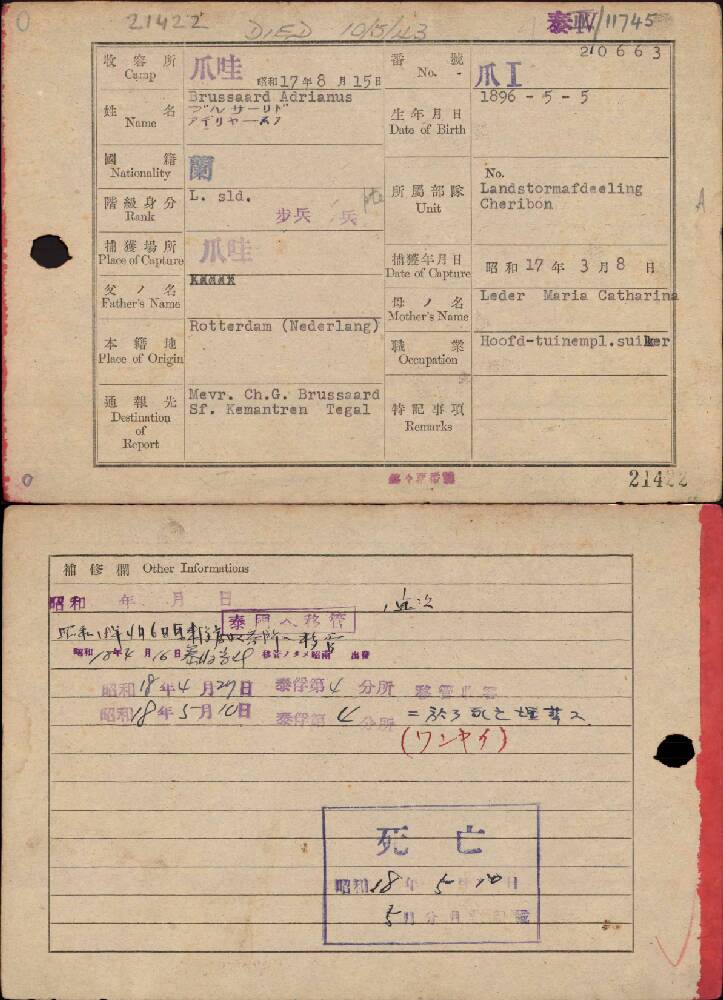 21422 DIED 10/5/43 泰Ⅳ/11745
210663
收容所 Camp 爪哇 昭和17年8月15日 番號 No. 爪I
姓名 Name Brussaard Adrianus 生年月日 Date of Birth 1896 - 5 - 5
ブルサーリド
アドリヤーヌス
國籍 Nationality 蘭 所屬部隊 Unit No.
Landstormafdeeling
Cheribon
階級身分 Rank L. sld. 步兵 兵 pte
捕獲場所 Place of Capture 爪哇 捕獲年月日 Date of Capture 昭和17年3月8日
父ノ名 Father's Name 母ノ名 Mother's Name Leder Maria Catharina
本籍地 Place of Origin Rotterdam (Nederlang) 職業 Occupation Hoofd-tuinempl.suiker
通報先 Destination of Report Mevr. Ch.G. Brussaard
Sf. Kemantren Tegal
特記事項 Remarks
21422
補修欄 Other Informations
昭和 年 月 日
泰門へ移管
昭和18年4月16日
昭和18年4月27日 泰俘第4分所 移管收容
昭和18年5月10日 泰俘第4分所ニ於テ死亡埋葬ス
(ワンヤイ)
死亡
昭和18年5月10日
5月分月